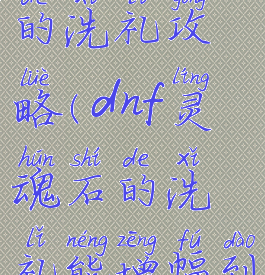 的洗礼攻
lüè líng
略(dnf灵
hún shí de xǐ
魂石的洗
lǐ néng zēng fú dào
礼能增幅到